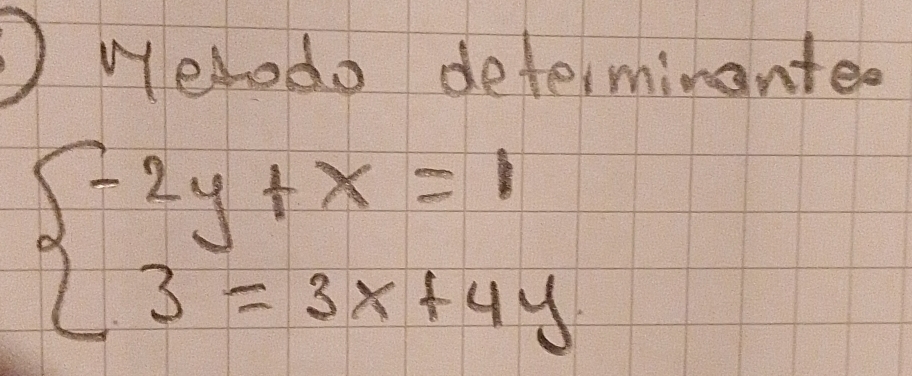 ) Metodo determinantes
-2y + x = 1
3 = 3x + 4y